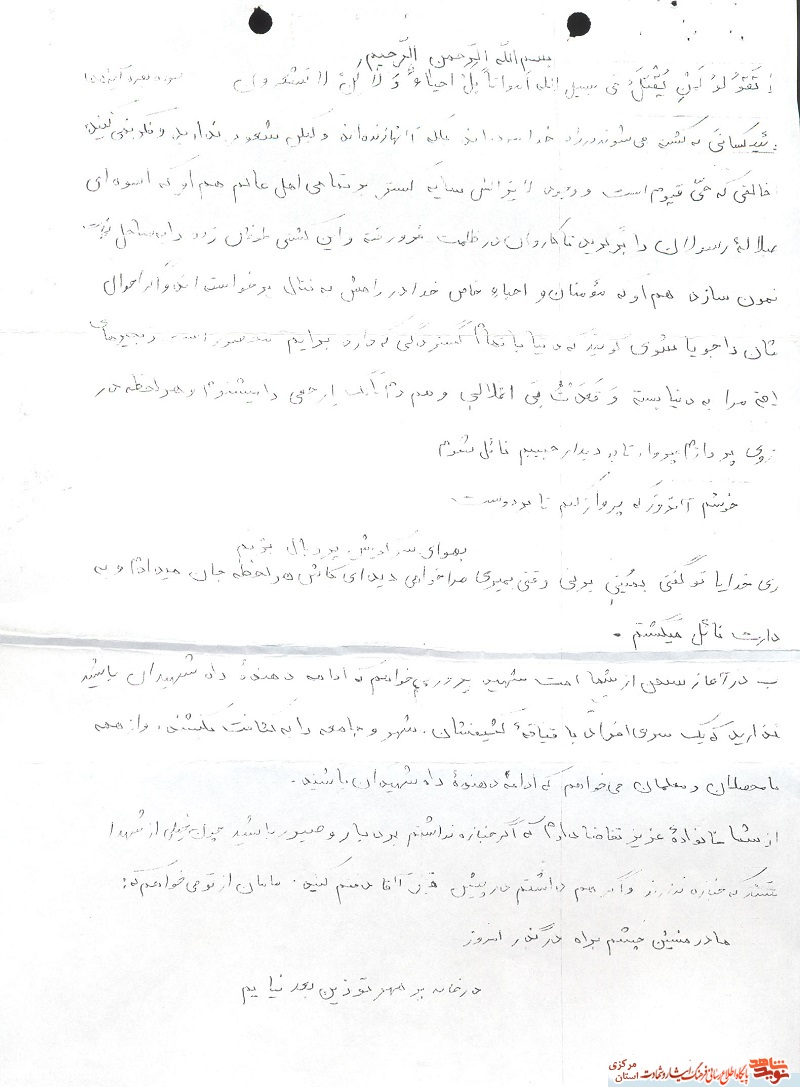 بسم الله الرحمن الرحیم
تَقُولوُ لِمَن یُقتَلُ فی سبیل الله امواتاً بَلْ احیاءٌ وَلاکِن لا تشعرون سوره بقره آیه
کسانی که کشته می‌شوند در راه خدا مرده‌اند بلکه آنها زنده‌اند ولیکن شعور ندارید و فکر نمی‌کنید
خالقی که حیّ قیوم است و وجود لایزالش سایه گستر بر تمامی اهل عالم هم او که اسوه‌ای
سلالهٔ رسولان را تا کاروان در ظلمت فرو رفته و این کشتی طوفان زده را به ساحل نجات
نمون سازد هم او که مؤمنان و احباء خاص خدا در راهش به قتال برخواسته‌اند و اگر احوال
شان را جویا شوی گویند که دنیا با تمام گستردگی که دارد برایم است
مرا به دنیا بسته وَ قَعَدَتْ بی اغلالی و هم دم ارجعی را میشنوم و هر لحظه در
زوی پروازم پرواز تا به دیدار حبیبم نائل شوم
خوشم آنروز که پرواز کنم تا بر دوست
بهوای سر کویش پر و بال بزنم
ری خدایا تو گفتی بمیری وقتی بمیری مرا خواهی دید ای کاش هر لحظه جان میدادم و به
دارت نائل میگشتم .
ب در آغاز سخن از شما امت شهید پرور می‌خواهم که ادامه دهندهٔ راه شهیدان باشید
نذارید که یک سری افراد با قیافهٔ کثیفشان، شهر و جامعه را به کثافت بکشند، و از همه
محصلان و معلمان می‌خواهم که ادامهٔ دهندهٔ راه شهیدان باشند.
از شما خانوادهٔ عزیز تقاضا دارم که اگر جنازه نداشتم بردبار و صبور باشید چون خیلی از شهدا
که جنازه ندارند و اگر هم داشتم در پیش قبر آقا دفنم کنید. مامان از تو می‌خواهم که:
مادر منشین چشم براه در گذر امروز
در خانه پر مهر تو زین بعد نیایم
نوید شاهد
پایگاه اطلاع رسانی فرهنگ ایثار و شهادت استان مرکزی